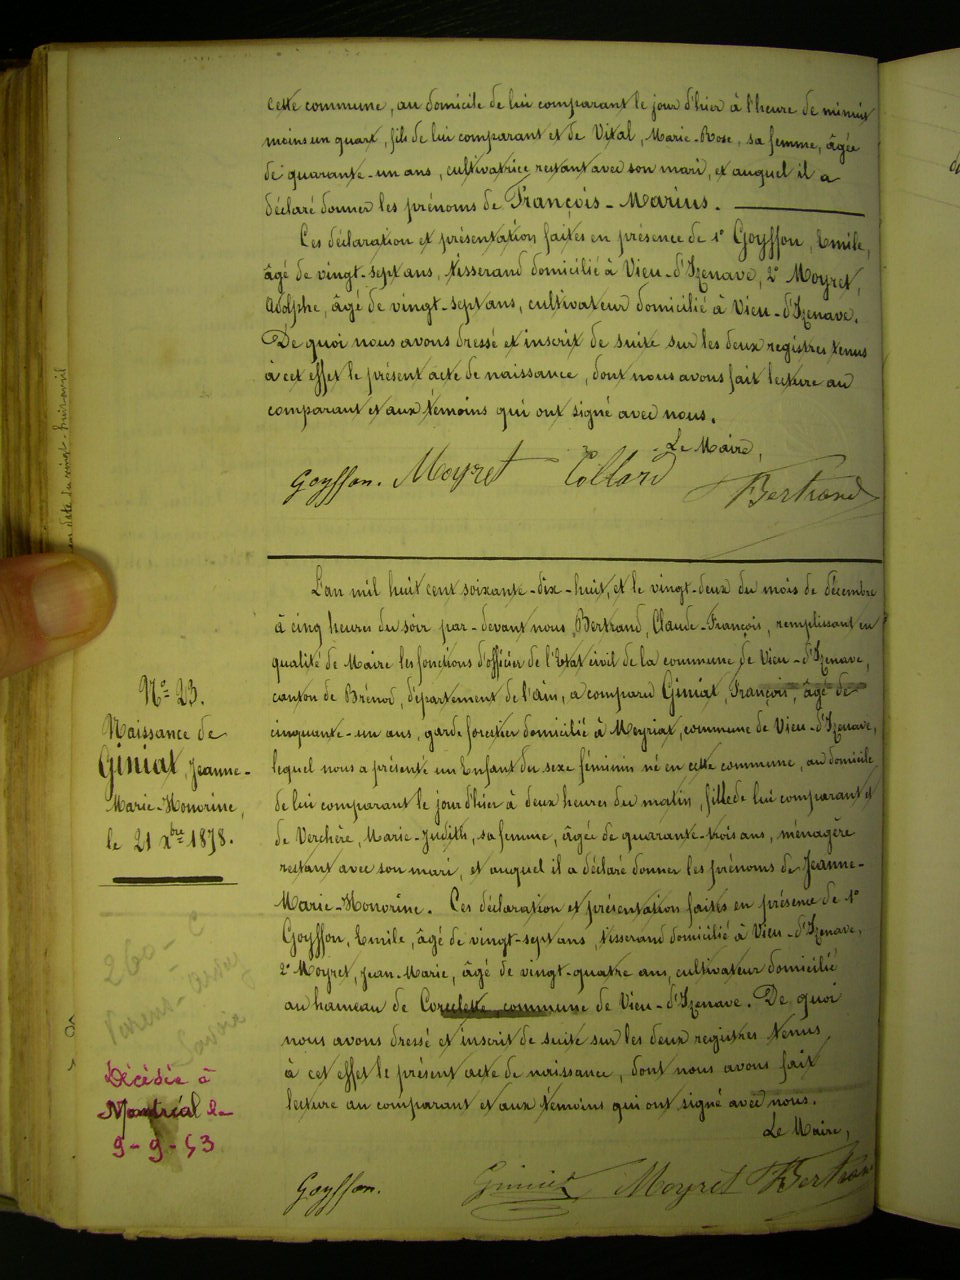 cette commune, au domicile de lui comparant le jour d'hier à l'heure de minuit
moins un quart, fils de lui comparant et de Vital, Marie-Rose, sa femme, âgée
de quarante-un ans, cultivatrice restant avec son mari, et auquel il a
déclaré donner les prénoms de François-Marius.
Ces déclaration et présentation faites en présence de 1° Goyffon, Emile,
âgé de vingt-sept ans, tisserand domicilié à Vieu-d'Izenave, 2° Moyret,
Adolphe, âgé de vingt-sept ans, cultivateur domicilié à Vieu-d'Izenave.
De quoi nous avons dressé et inscrit de suite sur les deux registres tenus
à cet effet le présent acte de naissance, dont nous avons fait lecture au
comparant et aux témoins qui ont signé avec nous.
Le Maire,
Goyffon. Moyret Collard Bertrand
en date du vingt-huit avril
L'an mil huit cent soixante-dix-huit, et le vingt-deux du mois de décembre
à cinq heures du soir par-devant nous, Bertrand, Claude-François, remplissant en
qualité de Maire les fonctions d'officier de l'Etat civil de la commune de Vieu-d'Izenave,
canton de Brénod, département de l'ain, a comparu Giniat, François, âgé de
cinquante-un ans, garde forestier domicilié à Meyriat, commune de Vieu-d'Izenave,
lequel nous a présenté un Enfant du sexe féminin né en cette commune, au domicile
de lui comparant le jour d'hier à deux heures du matin, fille de lui comparant et
de Verchère, Marie-Judith, sa femme, âgée de quarante-trois ans, ménagère
restant avec son mari, et auquel il a déclaré donner les prénoms de Jeanne-
Marie-Honorine. Ces déclaration et présentation faites en présence de 1°
Goyffon, Emile, âgé de vingt-sept ans, tisserand domicilié à Vieu-d'Izenave,
2° Moyret, Jean-Marie, âgé de vingt-quatre ans, cultivateur domicilié
au hameau de Corcelette, commune de Vieu-d'Izenave. De quoi
nous avons dressé et inscrit de suite sur les deux registres tenus
à cet effet le présent acte de naissance, dont nous avons fait
lecture au comparant et aux témoins qui ont signé avec nous.
Le Maire,
Goyffon. Giniat Moyret Bertrand
N° 23.
Naissance de
Giniat, Jeanne-
Marie-Honorine,
le 21 xbre 1878.
Décédée à
Montréal le
9-9-53